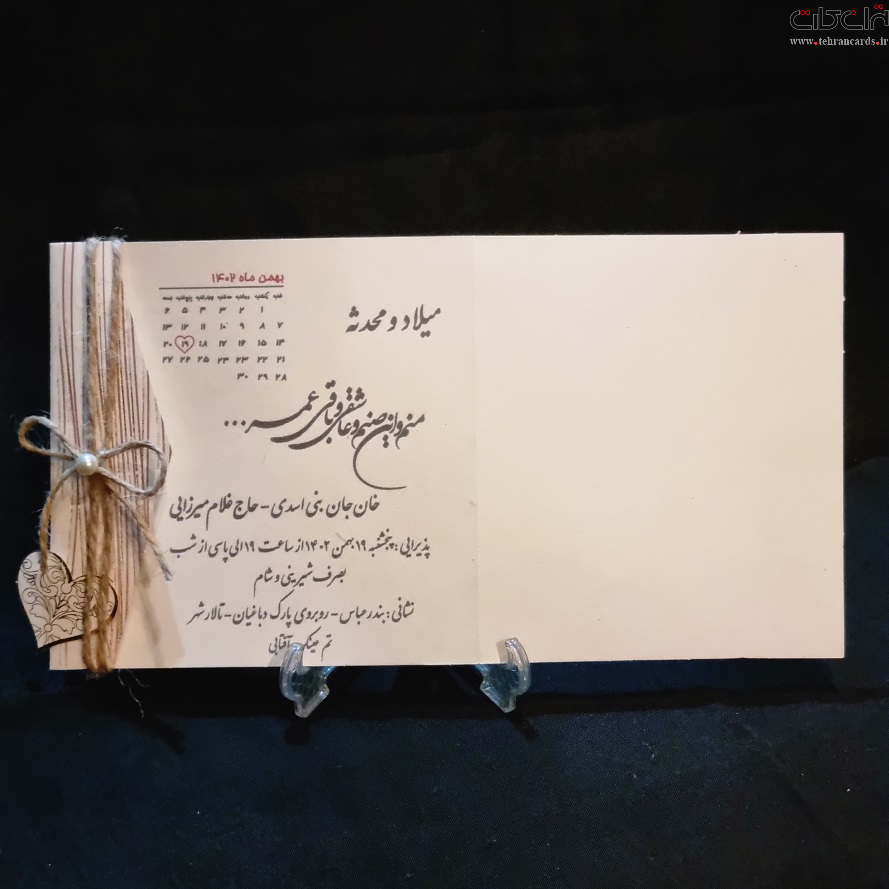 تهران کارت
www.tehrancards.ir
بهمن ماه ۱۴۰۲
شنبه یکشنبه دوشنبه سه‌شنبه چهارشنبه پنج‌شنبه جمعه
۱ ۲ ۳ ۴ ۵ ۶
۷ ۸ ۹ ۱۰ ۱۱ ۱۲ ۱۳
۱۴ ۱۵ ۱۶ ۱۷ ۱۸ ۱۹ ۲۰
۲۱ ۲۲ ۲۳ ۲۴ ۲۵ ۲۶ ۲۷
۲۸ ۲۹ ۳۰
میلاد و محدثه
منم و این صنم و عاشقی و باقی عمر ...
خان جان بنی اسدی - حاج غلام میرزایی
پذیرایی : پنجشنبه ۱۹ بهمن ۱۴۰۲ از ساعت ۱۹ الی پاسی از شب
بصرف شیرینی و شام
نشانی : بندرعباس - روبروی پارک دباغیان - تالار شهر
تم عینک آفتابی